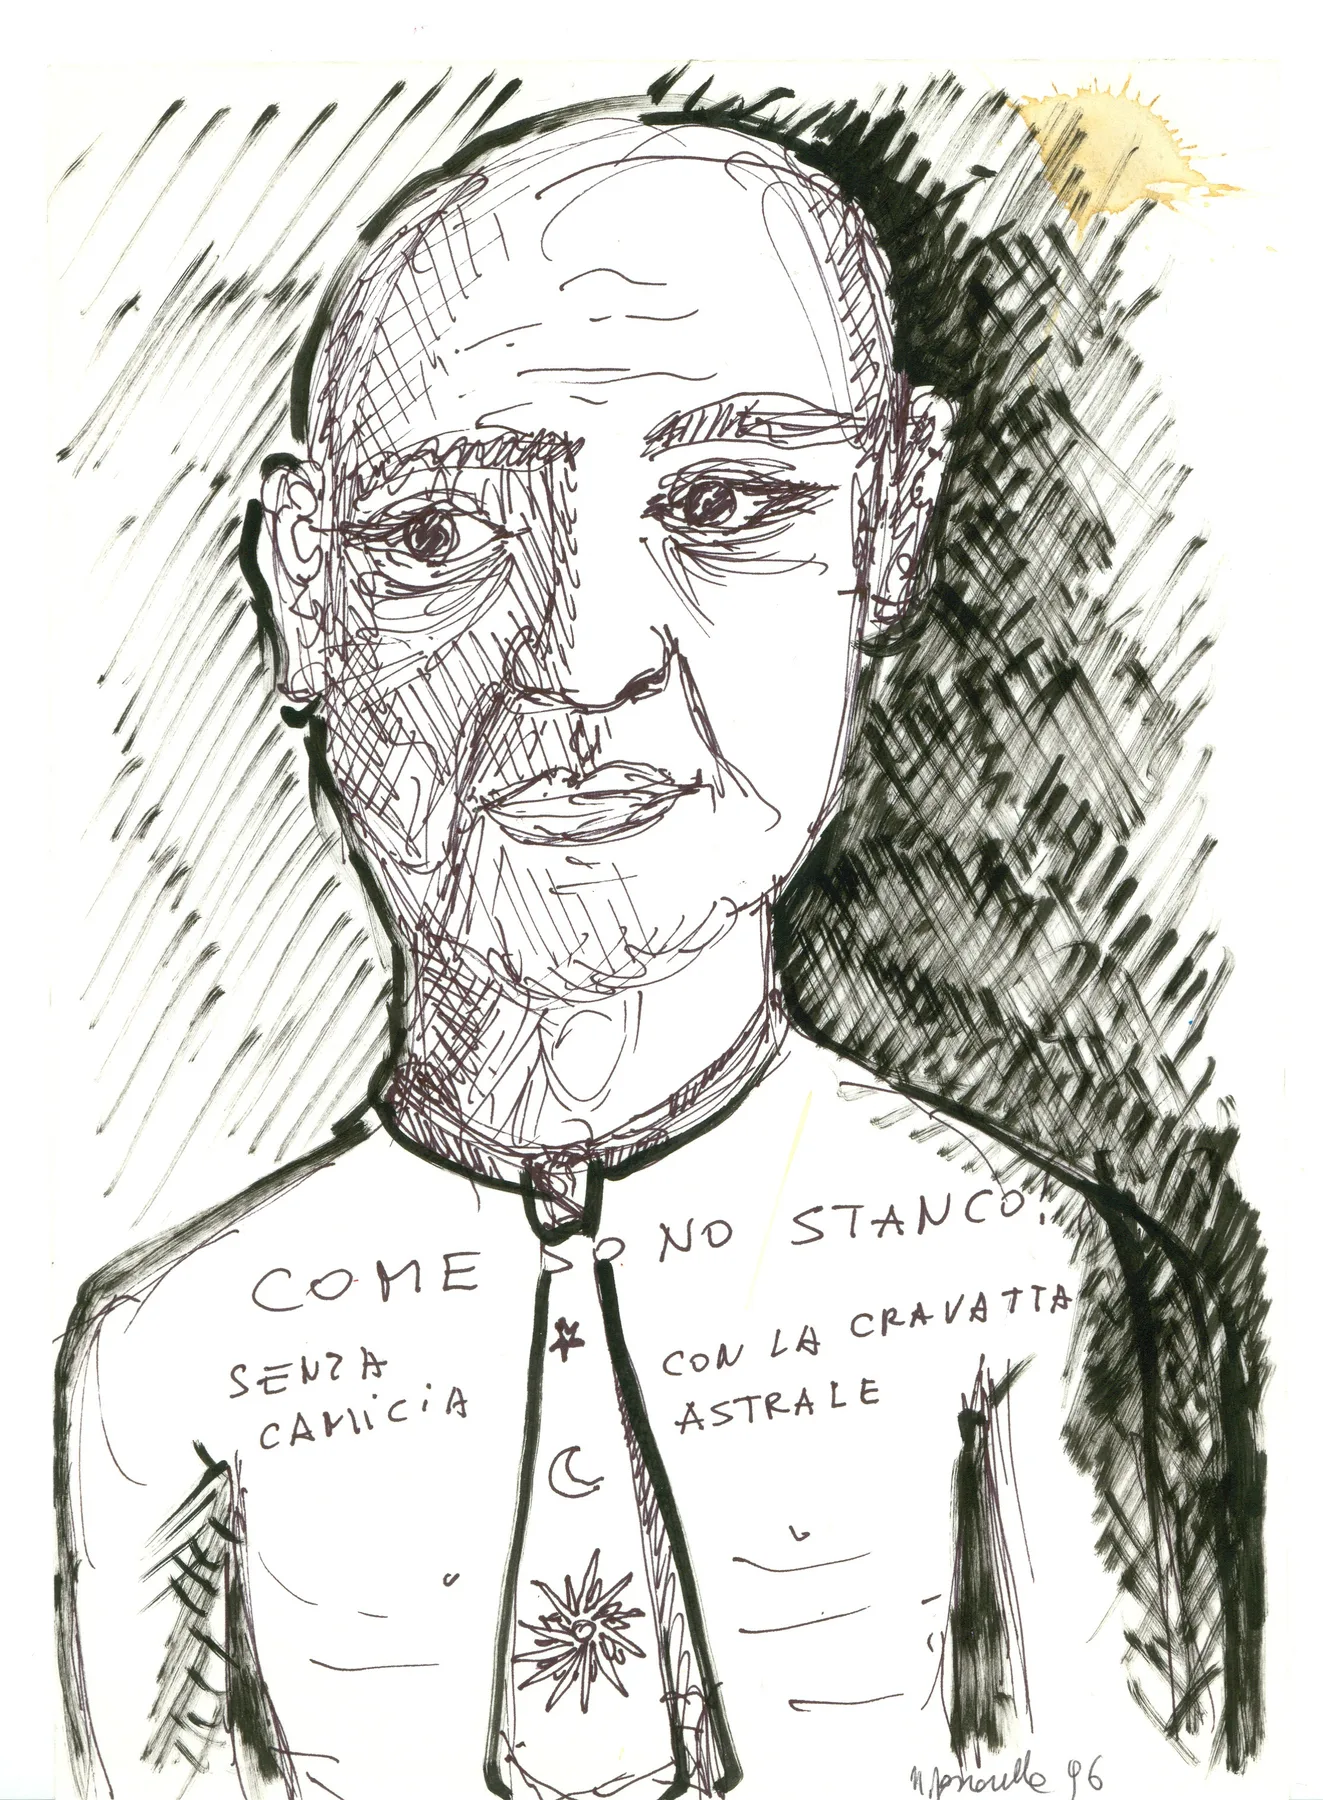 COME SONO STANCO!
SENZA
CAMICIA
CON LA CRAVATTA
ASTRALE
96